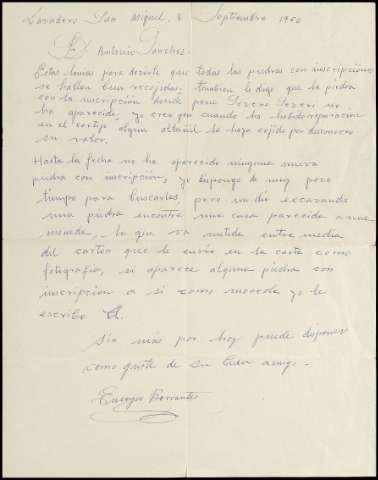 Lavadero San Miguel, 8 Septiembre 1960
D. Antonio Sanchez.
Estas lineas para decirle que todas las piedras con inscripciones
se hallan bien recogidas, tambien le digo que la piedra
con la inscripción donde pone
ha aparecido, yo creo que cuando ha habido reparación
en el cortijo algun albañil la haya cojido por desconocer
su valor.
Hasta la fecha no ha aparecido ninguna nueva
piedra con inscripción, yo dispongo de muy poco
tiempo para buscarlas, pero un dia excavando
una piedra encontré una cosa parecida a una
moneda, la que va metida entre media
del carton que le envio en la carta como
fotografia, si aparece alguna piedra con
inscripcion a si como moneda yo le
escribo a V.
Sin más por hoy puede disponer
como guste de su buen amigo.